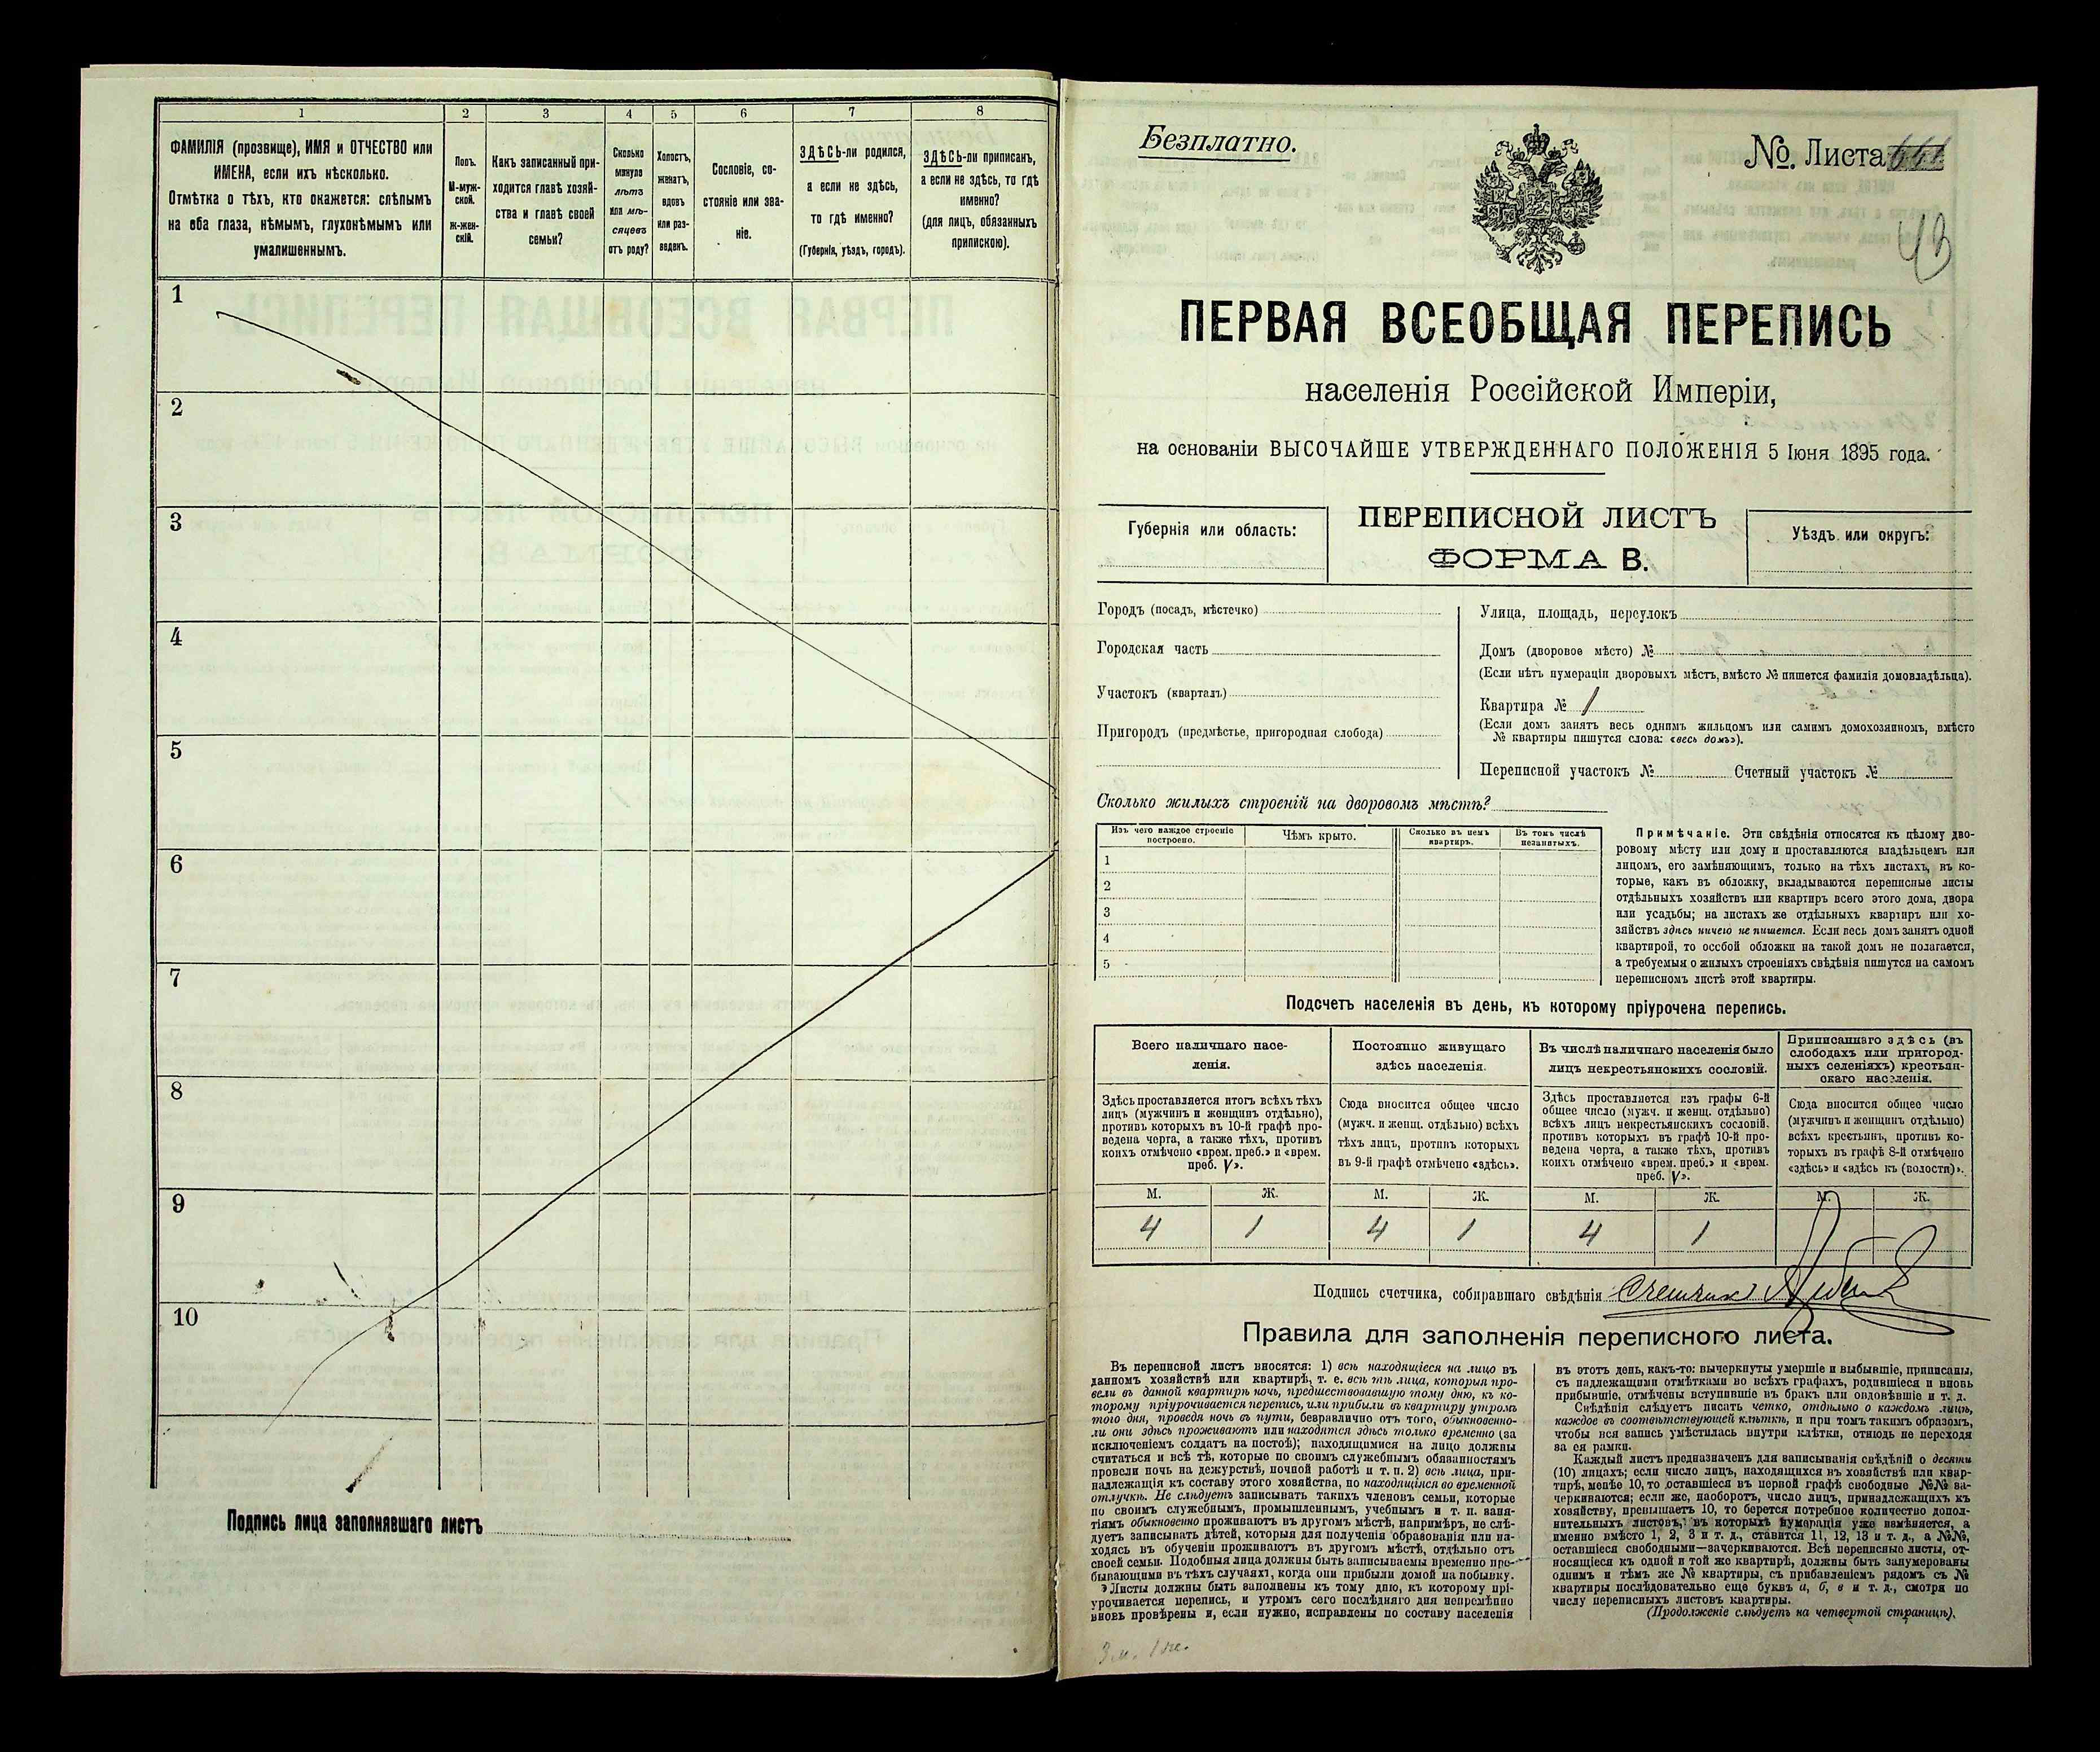 1 2 3 4 5 6 7 8
ФАМИЛІЯ (прозвище), ИМЯ и ОТЧЕСТВО или
ИМЕНА, если ихъ нѣсколько.
Отмѣтка о тѣхъ, кто окажется: слѣпымъ
на оба глаза, нѣмымъ, глухонѣмымъ или
умалишеннымъ.
Полъ.
М-муж-
ской.
Ж-жен-
скій.
Какъ записанный при-
ходится главѣ хозяй-
ства и главѣ своей
семьи?
Сколько
минуло
лѣтъ
или мѣ-
сяцевъ
отъ роду?
Холостъ,
женатъ,
вдовъ
или раз-
веденъ.
Сословіе, со-
стояніе или зва-
ніе.
ЗДѢСЬ-ли родился,
а если не здѣсь,
то гдѣ именно?
(Губернія, уѣздъ, городъ).
ЗДѢСЬ-ли приписанъ,
а если не здѣсь, то гдѣ
именно?
(для лицъ, обязанныхъ
припискою).
1
2
3
4
5
6
7
8
9
10
Подпись лица заполнявшаго листъ
Безплатно.
№. Листа
43
ПЕРВАЯ ВСЕОБЩАЯ ПЕРЕПИСЬ
населенія Россійской Имперіи,
на основаніи ВЫСОЧАЙШЕ УТВЕРЖДЕННАГО ПОЛОЖЕНІЯ 5 Іюня 1895 года.
Губернія или область:
ПЕРЕПИСНОЙ ЛИСТЪ
ФОРМА В.
Уѣздъ или округъ:
Городъ (посадъ, мѣстечко)
Городская часть
Участокъ (кварталъ)
Пригородъ (предмѣстье, пригородная слобода)
Улица, площадь, переулокъ
Домъ (дворовое мѣсто) №
(Если нѣтъ нумераціи дворовыхъ мѣстъ, вмѣсто № пишется фамилія домовладѣльца).
Квартира № 1
(Если домъ занятъ весь однимъ жильцомъ или самимъ домохозяиномъ, вмѣсто
№ квартиры пишутся слова: «весь домъ»).
Переписной участокъ № Счетный участокъ №
Сколько жилыхъ строеній на дворовомъ мѣстѣ?
Изъ чего каждое строеніе
построено.
Чѣмъ крыто.
Сколько въ немъ
квартиръ.
Въ томъ числѣ
незанятыхъ.
1
2
3
4
5
Примѣчаніе. Эти свѣдѣнія относятся къ цѣлому дво-
ровому мѣсту или дому и проставляются владѣльцемъ или
лицомъ, его замѣняющимъ, только на тѣхъ листахъ, въ ко-
торые, какъ въ обложку, вкладываются переписные листы
отдѣльныхъ хозяйствъ или квартиръ всего этого дома, двора
или усадьбы; на листахъ же отдѣльныхъ квартиръ или хо-
зяйствъ здѣсь ничего не пишется. Если весь домъ занятъ одной
квартирой, то особой обложки на такой домъ не полагается,
а требуемыя о жилыхъ строеніяхъ свѣдѣнія пишутся на самомъ
переписномъ листѣ этой квартиры.
Подсчетъ населенія въ день, къ которому пріурочена перепись.
Всего наличнаго насе-
ленія.
Постоянно живущаго
здѣсь населенія.
Въ числѣ наличнаго населенія было
лицъ некрестьянскихъ сословій.
Приписаннаго здѣсь (въ
слободахъ или пригород-
ныхъ селеніяхъ) крестьян-
скаго населенія.
Здѣсь проставляется итогъ всѣхъ тѣхъ
лицъ (мужчинъ и женщинъ отдѣльно),
противъ которыхъ въ 10-й графѣ про-
ведена черта, а также тѣхъ, противъ
коихъ отмѣчено «врем. преб.» и «врем.
преб. V».
Сюда вносится общее число
(мужч. и женщ. отдѣльно) всѣхъ
тѣхъ лицъ, противъ которыхъ
въ 9-й графѣ отмѣчено «здѣсь».
Здѣсь проставляется изъ графы 6-й
общее число (мужч. и женщ. отдѣльно)
всѣхъ лицъ некрестьянскихъ сословій,
противъ которыхъ въ графѣ 10-й про-
ведена черта, а также тѣхъ, противъ
коихъ отмѣчено «врем. преб.» и «врем.
преб. V».
Сюда вносится общее число
(мужчинъ и женщинъ отдѣльно)
всѣхъ крестьянъ, противъ ко-
торыхъ въ графѣ 8-й отмѣчено
«здѣсь» и «здѣсь къ (волости)».
М. Ж. М. Ж. М. Ж. М. Ж.
4 1 4 1 4 1
Подпись счетчика, собиравшаго свѣдѣнія Счетчикъ
Правила для заполненія переписного листа.
Въ переписной листъ вносятся: 1) всѣ находящіеся на лицо въ
данномъ хозяйствѣ или квартирѣ, т. е. всѣ тѣ лица, которыя про-
вели въ данной квартирѣ ночь, предшествовавшую тому дню, къ ко-
торому пріурочивается перепись, или прибыли въ квартиру утромъ
того дня, проведя ночь въ пути, безразлично отъ того, обыкновенно-
ли они здѣсь проживаютъ или находятся здѣсь только временно (за
исключеніемъ солдатъ на постоѣ); находящимися на лицо должны
считаться и всѣ тѣ, которые по своимъ служебнымъ обязанностямъ
провели ночь на дежурствѣ, ночной работѣ и т. п. 2) всѣ лица, при-
надлежащія къ составу этого хозяйства, но находящіяся во временной
отлучкѣ. Не слѣдуетъ записывать такихъ членовъ семьи, которые
по своимъ служебнымъ, промышленнымъ, учебнымъ и т. п. заня-
тіямъ обыкновенно проживаютъ въ другомъ мѣстѣ, напримѣръ, не слѣ-
дуетъ записывать дѣтей, которыя для полученія образованія или на-
ходясь въ обученіи проживаютъ въ другомъ мѣстѣ, отдѣльно отъ
своей семьи. Подобныя лица должны быть записываемы временно пре-
бывающими въ тѣхъ случаяхъ, когда они прибыли домой на побывку.
Листы должны быть заполнены къ тому дню, къ которому прі-
урочивается перепись, и утромъ сего послѣдняго дня непремѣнно
вновь провѣрены и, если нужно, исправлены по составу населенія
въ этотъ день, какъ-то: вычеркнуты умершіе и выбывшіе, приписаны,
съ надлежащими отмѣтками во всѣхъ графахъ, родившіеся и вновь
прибывшіе, отмѣчены вступившіе въ бракъ или овдовѣвшіе и т. д.
Свѣдѣнія слѣдуетъ писать четко, отдѣльно о каждомъ лицѣ,
каждое въ соотвѣтствующей клѣткѣ, и при томъ такимъ образомъ,
чтобы вся запись умѣстилась внутри клѣтки, отнюдь не переходя
за ея рамки.
Каждый листъ предназначенъ для записыванія свѣдѣній о десяти
(10) лицахъ; если число лицъ, находящихся въ хозяйствѣ или квар-
тирѣ, менѣе 10, то оставшіеся въ первой графѣ свободные №№ за-
черкиваются; если же, наоборотъ, число лицъ, принадлежащихъ къ
хозяйству, превышаетъ 10, то берется потребное количество допол-
нительныхъ листовъ, въ которыхъ нумерація уже измѣняется, а
именно вмѣсто 1, 2, 3 и т. д., ставится 11, 12, 13 и т. д., а №№,
оставшіеся свободными—зачеркиваются. Всѣ переписные листы, от-
носящіеся къ одной и той же квартирѣ, должны быть занумерованы
однимъ и тѣмъ же № квартиры, съ прибавленіемъ рядомъ съ №
квартиры послѣдовательно еще буквъ а, б, в и т. д., смотря по
числу переписныхъ листовъ квартиры.
(Продолженіе слѣдуетъ на четвертой страницѣ).
3 м. 1 ж.